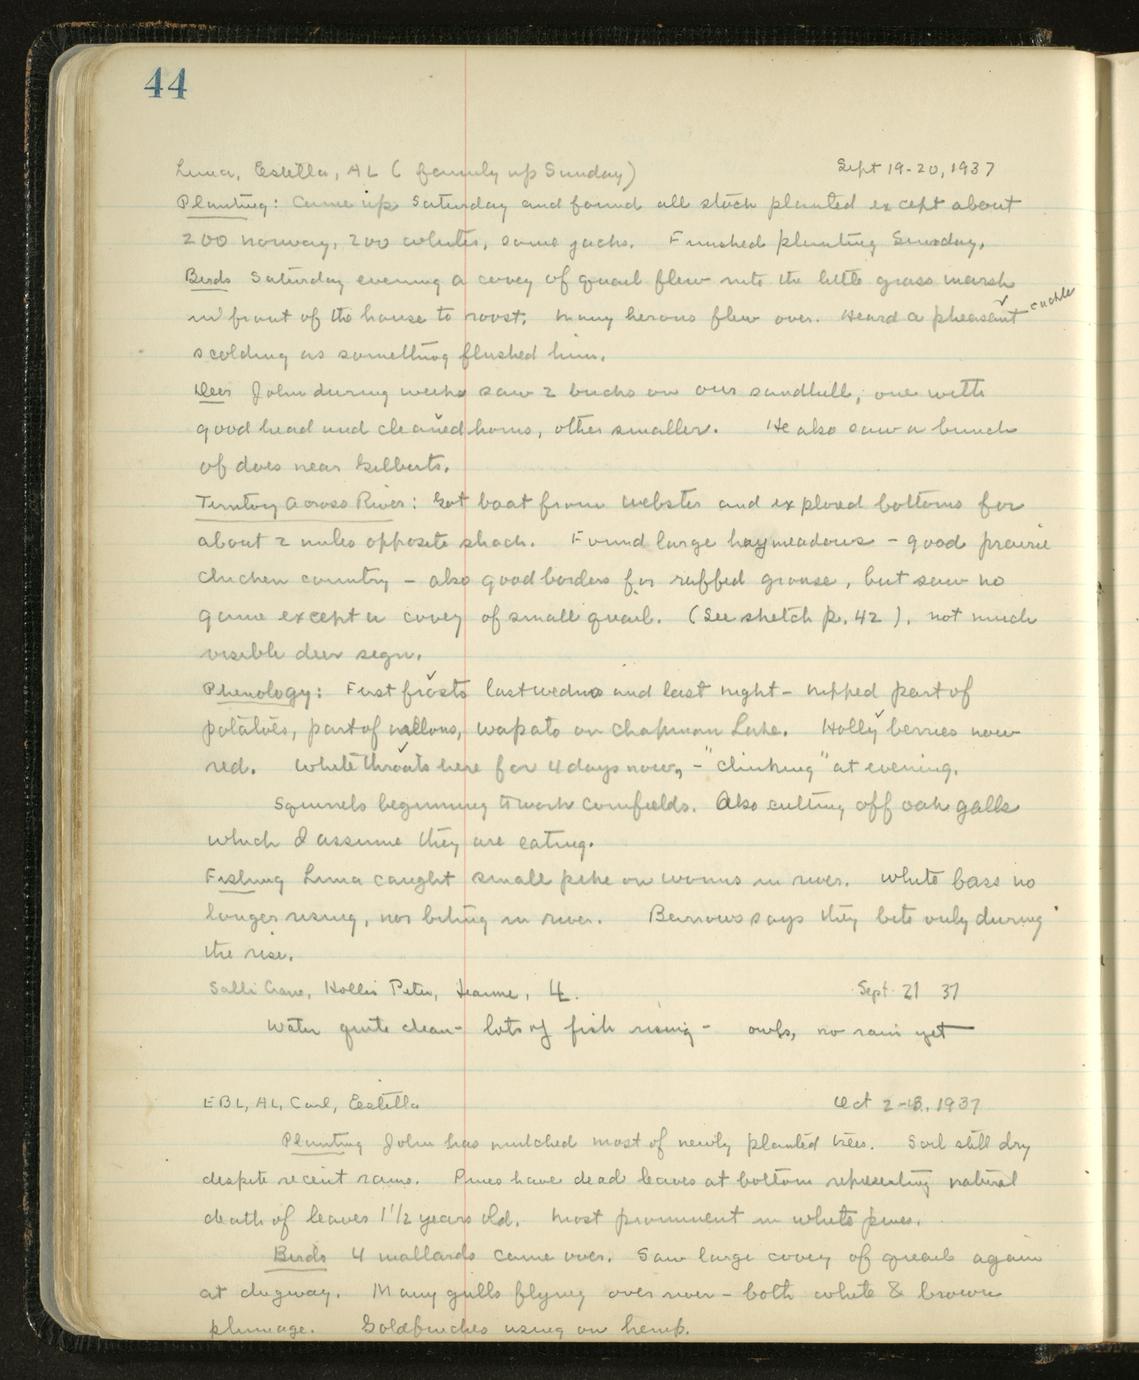 44
Luna, Estella, AL (family up Sunday) Sept 19-20, 1937
Planting: Came up Saturday and found all stock planted except about
200 norway, 200 whites, some jacks. Finished planting Sunday.
Birds Saturday evening a covey of quail flew into the little grass marsh
in front of the house to roost. Many herons flew over. Heard a pheasant cackle
scolding as something flushed him.
Deer John during week saw 2 bucks on our sandhill, one with
good head and cleaned horns, other smaller. He also saw a bunch
of does near Gilberts.
Territory Across River: Got boat from Webster and explored bottoms for
about 2 miles opposite shack. Found large hay meadows - good prairie
chicken country - also good borders for ruffed grouse, but saw no
game except a covey of small quail. (See sketch p. 42), not much
visible deer sign.
Phenology: First frosts last and last night - nipped part of
potatoes, part of , wapato on Chapman Lake. Holly berries now
red. Whitethroats here for 4 days now, - "clinking" at evening.
Squirrels beginning to work cornfields. Also cutting off oak galls
which I assume they are eating.
Fishing Luna caught small pike on worms in river. White bass no
longer rising, nor biting in river. Barrows says they bite only during
the rise.
Peter, Jeanne, Sept 21 37
Water quite clear - lots of fish rising - owls, no rain yet
EBL, AL, Carl, Estella Oct 2-3, 1937
Planting John has mulched most of newly planted trees. Soil still dry
despite recent rains. Pines have dead leaves at bottom representing natural
death of leaves 1 1/2 years old. Most prominent in white pines.
Birds 4 mallards came over. Saw large covey of quail again
at dugway. Many gulls flying over river - both white & brown
plumage. Goldfinches using on hemp.